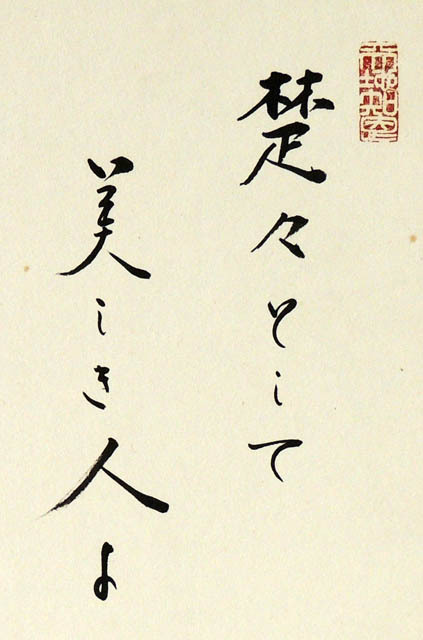 楚々として
美しき人よ